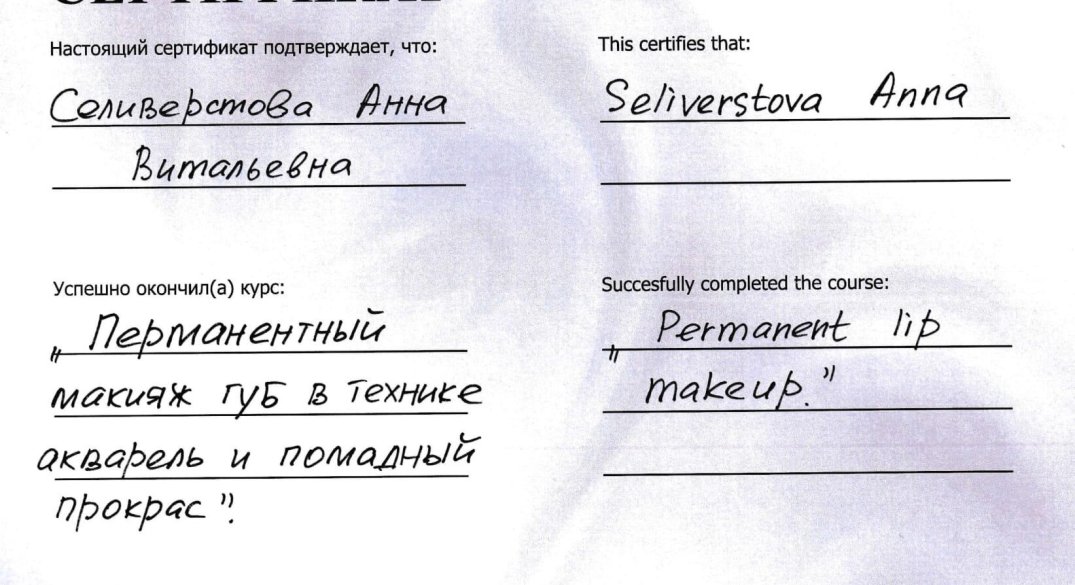 Настоящий сертификат подтверждает, что:
Селиверстова Анна
Витальевна
Успешно окончил(а) курс:
„ Перманентный
макияж губ в технике
акварель и помадный
прокрас".
This certifies that:
Seliverstova Anna
Succesfully completed the course:
„ Permanent lip
makeup."